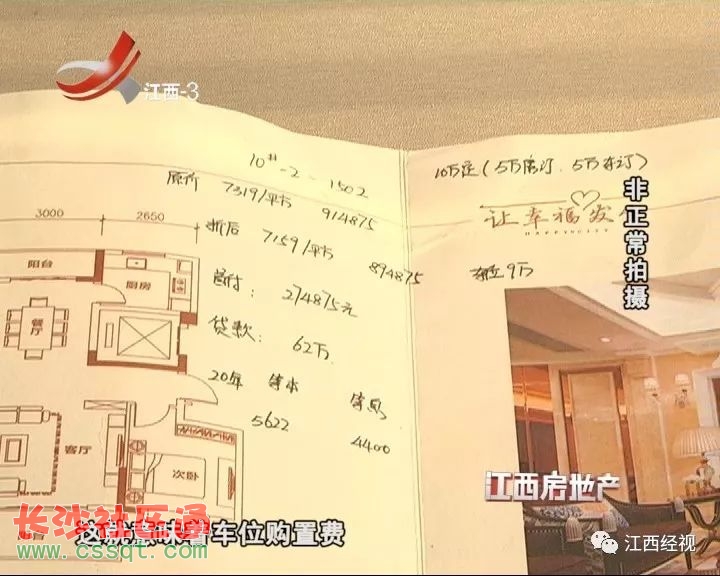 江西-3
10#-2-1502
原价 7319/平方 914875
折后 7159/平方 894875
首付： 274875元
贷款： 62万
20年 等本 等息
5622 4400
10万定（5万房订、5万车订）
让幸福发
HAPPYCITY
车位9万
3000 2650
阳台
厨房
餐厅
客厅
次卧
非正常拍摄
江西房地产
长沙社区通
www.cssqt.com
车位购置费
江西经视